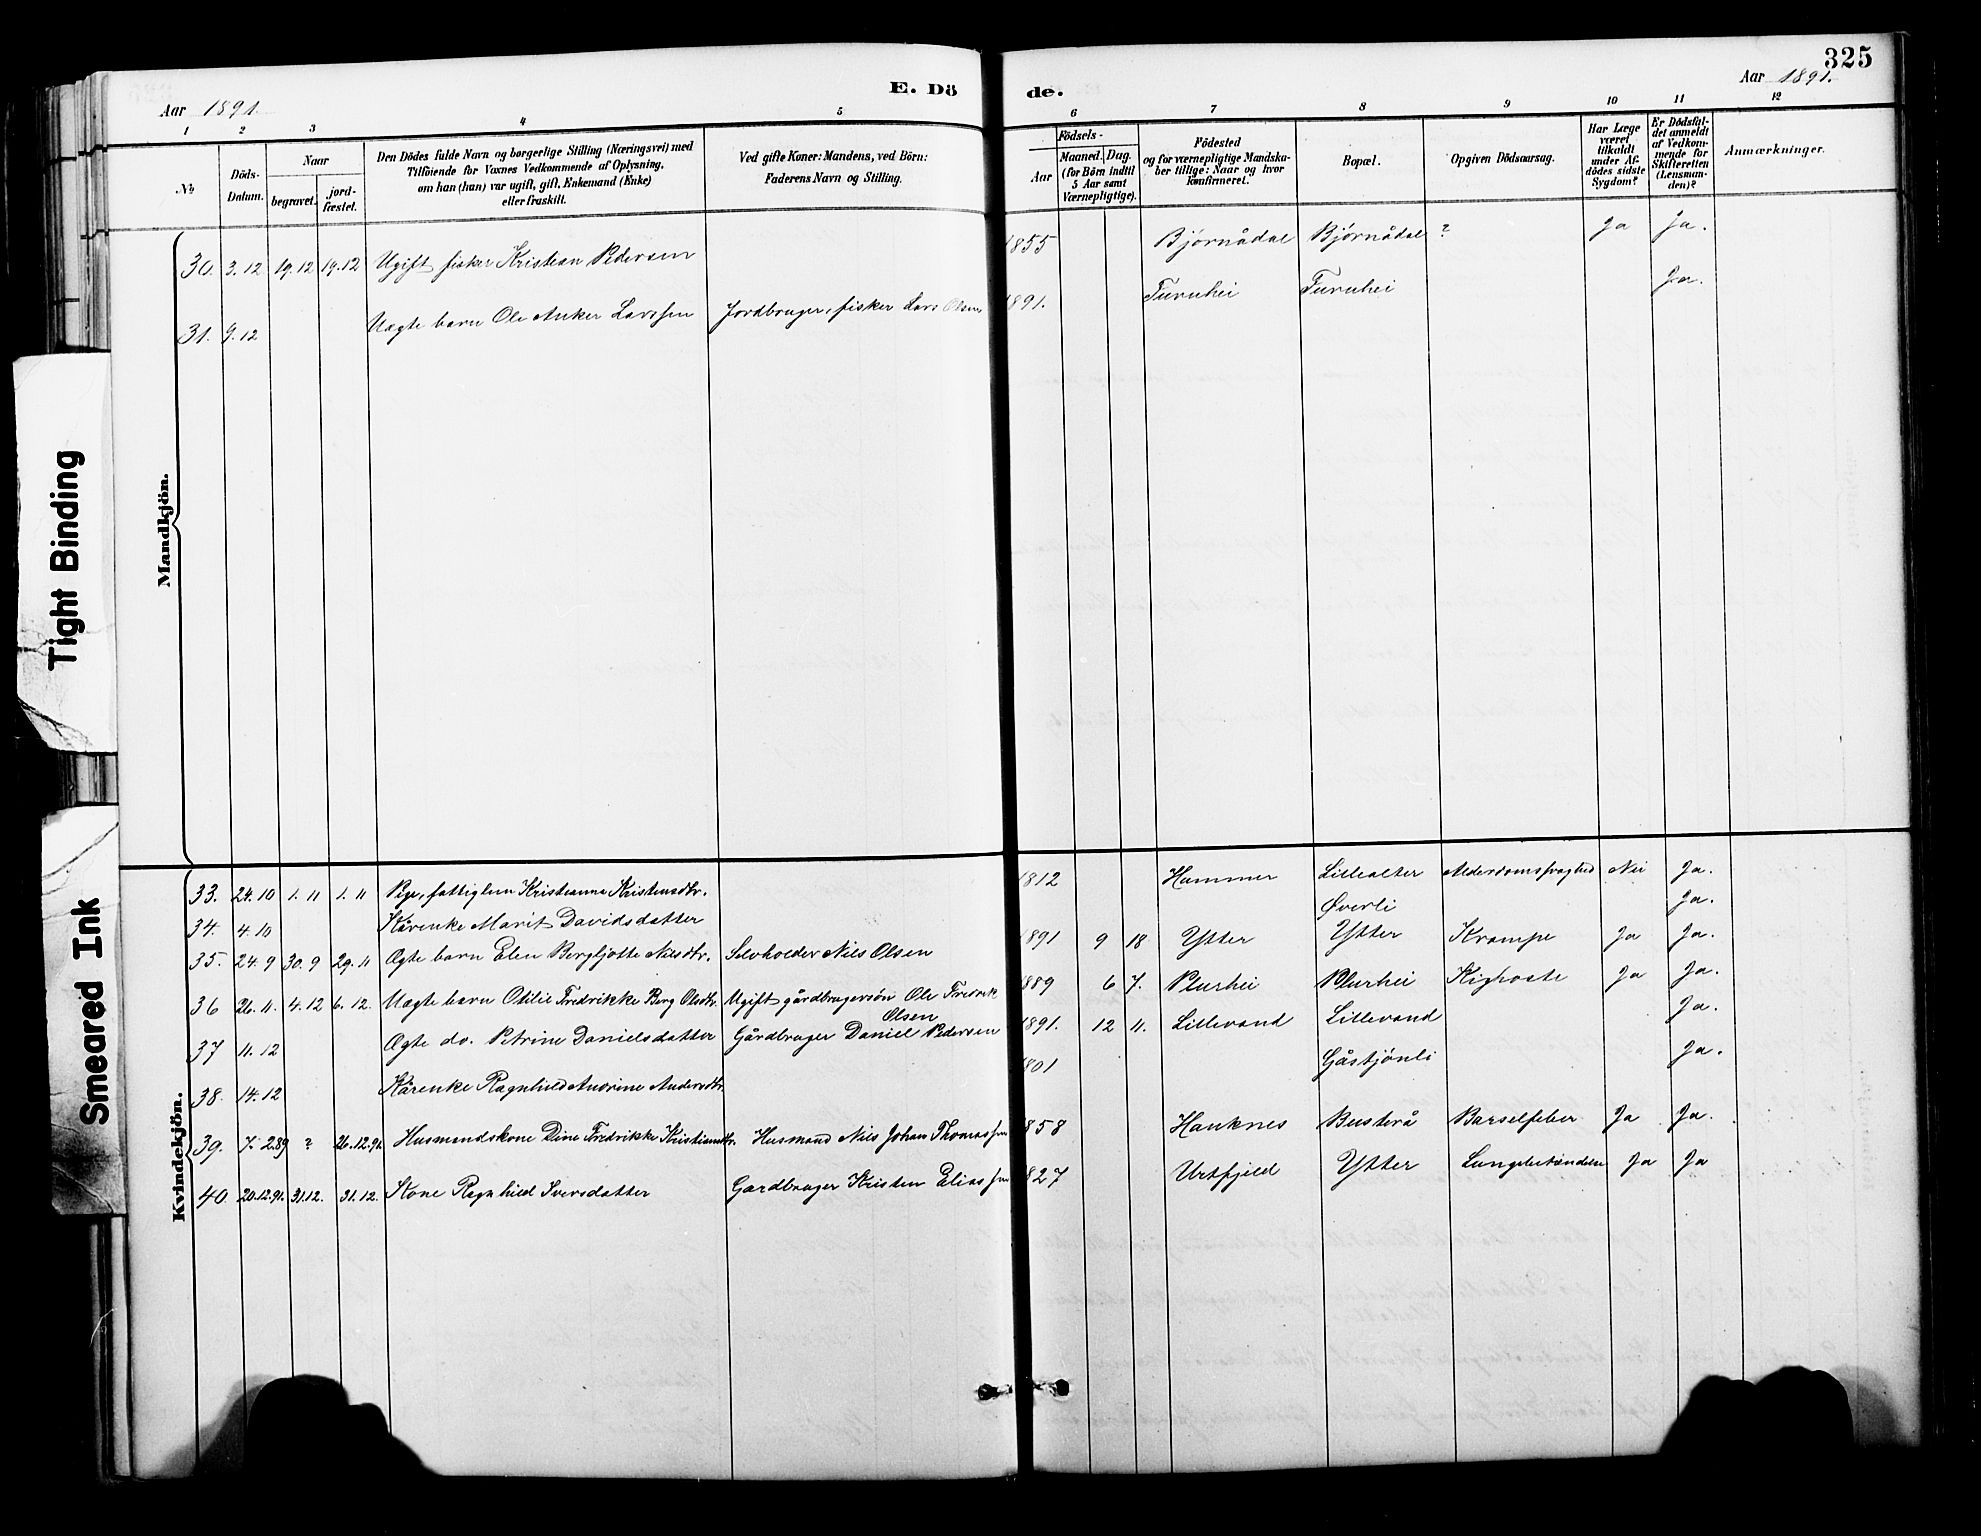 325
E. Dö de.
Aar 1891. Aar 1891.
1 2 3 4 5 6 7 8 9 10 11 12
№
Döds-Datum.
Naar
begravet.
jord-fæstet.
Den Dödes fulde Navn og borgerlige Stilling (Næringsvei) med
Tilföiende for Voxnes Vedkommende af Oplysning,
om han (hun) var ugift, gift, Enkemand (Enke)
eller fraskilt.
Ved gifte Koner: Mandens, ved Börn:
Faderens Navn og Stilling.
Födsels-
Aar
Maaned. Dag.
(for Börn indtil
5 Aar samt
Værnepligtige).
Födested
og for værnepligtige Mandska-
ber tillige: Naar og hvor
konfirmeret.
Bopæl.
Opgiven Dödsaarsag.
Har Læge
været
tilkaldt
under Af-
dödes sidste
Sygdom?
Er Dödsfal-
det anmeldt
af Vedkom-
mende for
Skifteretten
(Lensman-
den)?
Anmærkninger.
Mandkjön.
30. 3.12 19.12 19.12 Ugift fisker Kristian Pedersen 1855 Bjørnådal Bjørnådal ? Ja Ja.
31. 9.12 Uægte barn Ole Anker Larssen Jordbruger, fisker Lars Olsen 1891. Furuhei Furuhei Ja.
Kvindekjön.
33. 24.10 1.11 1.11 Pige, fattiglem Kristianna Kristensdtr. 1812 Hammer Lillealter Alderdomssvaghed Nei Ja.
34. 4.10 Kårenke Marit Davidsdatter Øverli Ja.
35. 24.9 30.9 29.11 Ægte barn Elen Bergljotte Nilsdtr. Selvholder Nils Olsen 1891 9 18 Ytter Ytter Krampe Ja Ja.
36 26.11. 4.12 6.12. Uægte barn Otilie Fredrikke Berg Olsdtr. Ugift gårdbrugersøn Ole Fredrik Olsen 1889 6 7. Plurhei Plurhei Kighoste Ja Ja.
37 11.12 Ægte do. Petrine Danielsdatter Gårdbruger Daniel Pedersen 1891. 12 11. Lillevand Lillevand Ja.
38. 14.12 Kårenke Ragnhild Andrine Andersdtr. 1801 Gåstjønli Ja.
39. 7.2.89 ? 26.12.91. Husmandskone Dine Fredrikke Kristiansdtr. Husmand Nils Johan Thomassen 1858 Hauknes Busterå Barselfeber Ja Ja.
40. 20.12.91. 31.12. 31.12. Kone Ragnhild Iversdatter Gaardbruger Kristen Eliassen 1827 Urtfjeld Ytter Lungebetændelse Ja Ja
Tight Binding
Smeared Ink